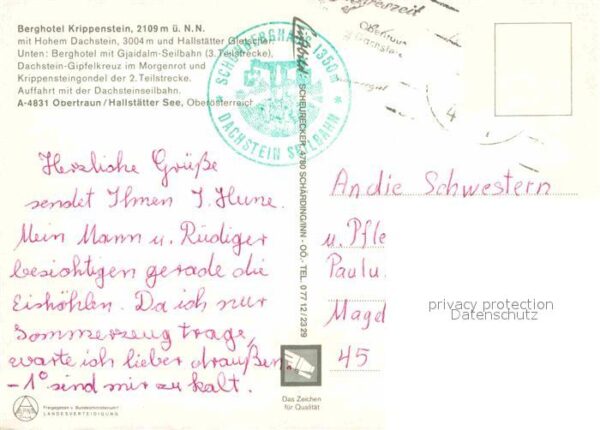 Berghotel Krippenstein, 2109 m ü. N.N.
mit Hohem Dachstein, 3004 m und Hallstätter Gletscher.
Unten: Berghotel mit Gjaidalm-Seilbahn (3. Teilstrecke),
Dachstein-Gipfelkreuz im Morgenrot und
Krippensteingondel der 2. Teilstrecke.
Auffahrt mit der Dachsteinseilbahn.
A-4831 Obertraun/Hallstätter See, Oberösterreich
SCHÖNBERGHAUS 1350m
* DACHSTEIN SEILBAHN *
Obertraun
Dachstein
Herzliche Grüße
sendet Ihnen J. Hune.
Mein Mann u. Rüdiger
besichtigen gerade die
Eishöhlen. Da ich nur
Sommerzeug trage,
warte ich lieber draußen.
-1° sind mir zu kalt.
SCHEURECKER, 4780 SCHÄRDING/INN - OÖ. - TEL. 0 77 12 / 23 29
An die Schwestern
u. Pfle
Paulu
Magd
45
privacy protection
Datenschutz
Das Zeichen
für Qualität
Freigegeben v. Bundesministerium f.
LANDESVERTEIDIGUNG